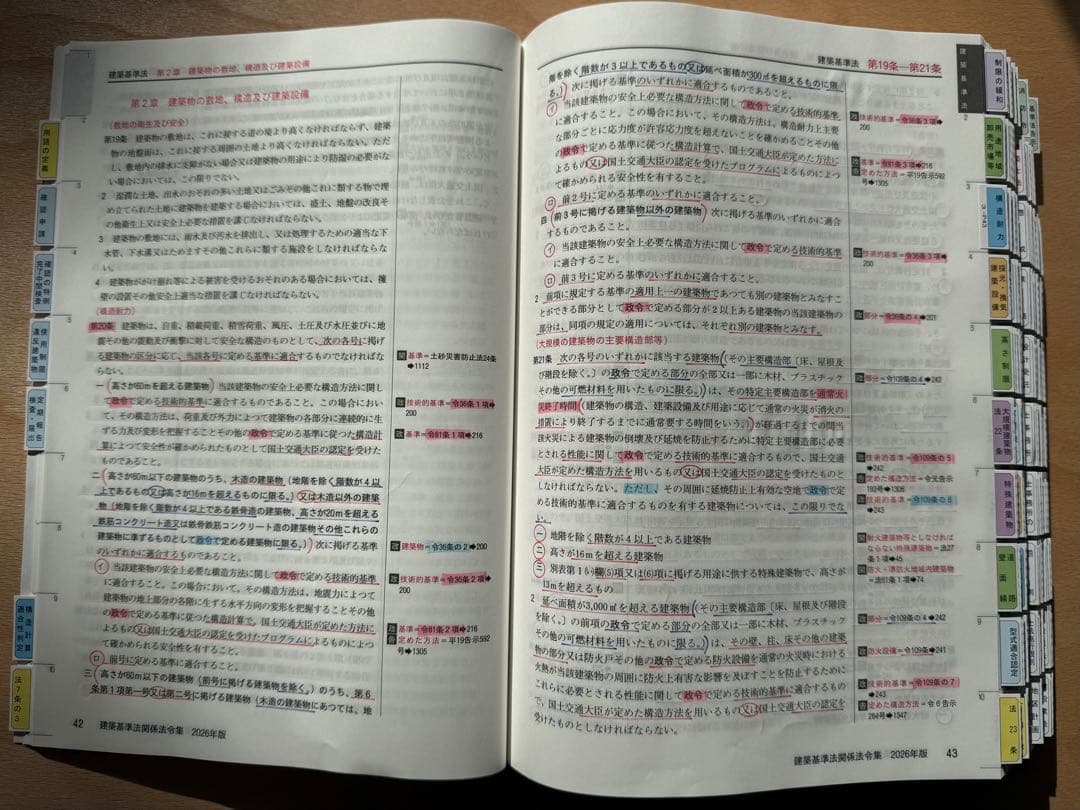 建築基準法 第2章 建築物の敷地、構造及び建築設備
第2章 建築物の敷地、構造及び建築設備
(敷地の衛生及び安全)
第19条 建築物の敷地は、これに接する道の境より高くなければならず、建築
物の地盤面は、これに接する周囲の土地より高くなければならない。ただ
し、敷地内の排水に支障がない場合又は建築物の用途により防湿の必要がな
い場合においては、この限りでない。
2 湿潤な土地、出水のおそれの多い土地又はごみその他これに類する物で埋
め立てられた土地に建築物を建築する場合においては、盛土、地盤の改良そ
の他衛生上又は安全上必要な措置を講じなければならない。
3 建築物の敷地には、雨水及び汚水を排出し、又は処理するための適当な下
水管、下水溝又はためますその他これらに類する施設をしなければならな
い。
4 建築物ががけ崩れ等による被害を受けるおそれのある場合においては、擁
壁の設置その他安全上適当な措置を講じなければならない。
(構造耐力)
第20条 建築物は、自重、積載荷重、積雪荷重、風圧、土圧及び水圧並びに地
震その他の震動及び衝撃に対して安全な構造のものとして、次の各号に掲げ
る建築物の区分に応じ、当該各号に定める基準に適合するものでなければな
らない。
一 (高さが60mを超える建築物) 当該建築物の安全上必要な構造方法に関し
て政令で定める技術的基準に適合するものであること。この場合におい
て、その構造方法は、荷重及び外力によつて建築物の各部分に連続的に生
ずる力及び変形を把握することその他の政令で定める基準に従つた構造計
算によつて安全性が確かめられたものとして国土交通大臣の認定を受けた
ものであること。
二 (高さが60m以下の建築物のうち、木造の建築物(地階を除く階数が4以
上であるもの又は高さが16mを超えるものに限る。)又は木造以外の建築
物(地階を除く階数が4以上である鉄骨造の建築物、高さが20mを超える
鉄筋コンクリート造又は鉄骨鉄筋コンクリート造の建築物その他これらの
建築物に準ずるものとして政令で定める建築物に限る。)) 次に掲げる基準
のいずれかに適合するものであること。
イ 当該建築物の安全上必要な構造方法に関して政令で定める技術的基準
に適合すること。この場合において、その構造方法は、地震力によつて
建築物の地上部分の各階に生ずる水平方向の変形を把握することその他
の政令で定める基準に従つた構造計算で、国土交通大臣が定めた方法に
よるもの又は国土交通大臣の認定を受けたプログラムによるものによつ
て確かめられる安全性を有すること。
ロ 前号に定める基準に適合すること。
三 (高さが60m以下の建築物(前号に掲げる建築物を除く。)のうち、第6
条第1項第一号又は第二号に掲げる建築物(木造の建築物にあつては、地
関 基準=土砂災害防止法24条
➡1112
政 技術的基準=令36条1項➡
200
政 基準=令81条1項➡216
政 建築物=令36条の2➡200
政 技術的基準=令36条2項➡
200
政 基準=令81条2項➡216
告 定めた方法=平19告示592
号➡1305
42 建築基準法関係法令集 2026年版
用語の定義
確認申請
確認の特例
完了中間検査
使用制限
違反建築物
定期報告
検査・届出
構造計算
適合性判定
法7条の3
建築基準法 第19条―第21条
階を除く階数が3以上であるもの又は延べ面積が300㎡を超えるものに限
る。) 次に掲げる基準のいずれかに適合するものであること。
イ 当該建築物の安全上必要な構造方法に関して政令で定める技術的基準
に適合すること。この場合において、その構造方法は、構造耐力上主要
な部分ごとに応力度が許容応力度を超えないことを確かめることその他
の政令で定める基準に従つた構造計算で、国土交通大臣が定めた方法に
よるもの又は国土交通大臣の認定を受けたプログラムによるものによつ
て確かめられる安全性を有すること。
ロ 前2号に定める基準のいずれかに適合すること。
四 (前3号に掲げる建築物以外の建築物) 次に掲げる基準のいずれかに適合
するものであること。
イ 当該建築物の安全上必要な構造方法に関して政令で定める技術的基準
に適合すること。
ロ 前3号に定める基準のいずれかに適合すること。
2 前項に規定する基準の適用上一の建築物であつても別の建築物とみなすこ
とができる部分として政令で定める部分が2以上ある建築物の当該建築物の
部分は、同項の規定の適用については、それぞれ別の建築物とみなす。
(大規模の建築物の主要構造部等)
第21条 次の各号のいずれかに該当する建築物(その主要構造部(床、屋根及
び階段を除く。)の政令で定める部分の全部又は一部に木材、プラスチック
その他の可燃材料を用いたものに限る。)は、その特定主要構造部を通常火
災終了時間(建築物の構造、建築設備及び用途に応じて通常の火災が消火の
措置により終了するまでに通常要する時間をいう。)が経過するまでの間当
該火災による建築物の倒壊及び延焼を防止するために特定主要構造部に必要
とされる性能に関して政令で定める技術的基準に適合するもので、国土交通
大臣が定めた構造方法を用いるもの又は国土交通大臣の認定を受けたものと
しなければならない。ただし、その周囲に延焼防止上有効な空地で政令で定
める技術的基準に適合するものを有する建築物については、この限りでな
い。
一 地階を除く階数が4以上である建築物
二 高さが16mを超える建築物
三 別表第1(い)欄(5)項又は(6)項に掲げる用途に供する特殊建築物で、高さが
13mを超えるもの
2 延べ面積が3,000㎡を超える建築物(その主要構造部(床、屋根及び階段
を除く。)の前項の政令で定める部分の全部又は一部に木材、プラスチック
その他の可燃材料を用いたものに限る。)は、その壁、柱、床その他の建築
物の部分又は防火戸その他の政令で定める防火設備を通常の火災時における
火熱が当該建築物の周囲に防火上有害な影響を及ぼすことを防止するために
これらに必要とされる性能に関して政令で定める技術的基準に適合するもの
で、国土交通大臣が定めた構造方法を用いるもの又は国土交通大臣の認定を
受けたものとしなければならない。
政 技術的基準=令36条3項➡
200
政 基準=令81条3項➡216
告 定めた方法=平19告示592
号➡1305
政 技術的基準=令36条3項➡
200
政 部分=令36条の4➡201
政 部分=令109条の4➡242
政 技術的基準=令109条の5
➡242
告 定めた構造方法=令元告示
193号➡1306
政 技術的基準=令109条の6
➡243
関 耐火建築物等としなければ
ならない特殊建築物=法27
条1項➡
関 防火・準防火地域内建築物
=法61条1項➡74
政 部分=令109条の4➡242
政 防火設備=令109条➡241
政 技術的基準=令109条の7
➡243
告 定めた構造方法=令6告示
284号➡1347
建築基準法関係法令集 2026年版 43
建築基準法
制限の緩和
用途地域
卸売市場等
構造耐力
採光・換気
建築設備
高さ制限
大規模建築物
法22条
特殊建築物
道路
壁面線
型式適合認定
法23条